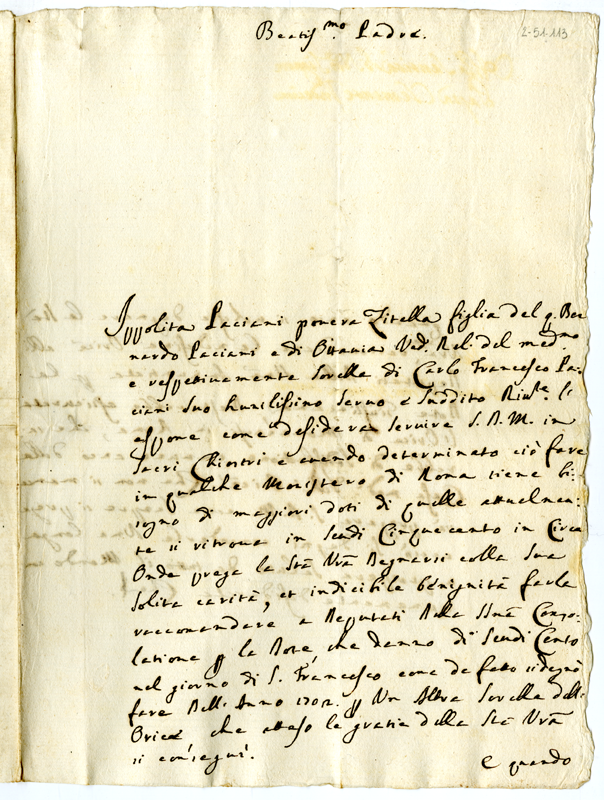 Beatis.mo Padre.
2-51-113
Ippolita Paciani povera Zitella figlia del q. Ber
nardo Paciani e di Ottavia Ved. Rel. del med.mo
e respettivamente Sorella di Carlo Francesco Pa-
ciani Suo humilissimo Servo e Suddito li
espone come desidera servire S. D. M. in
Sacri Chiostri e avendo determinato ciò fare
in qualche Monistero di Roma tiene bi:
sogno di maggiori doti di quelle attualmen:
te si ritrova in Scudi Cinquecento in Circa
Onde prega la Stà Vrà Degnarsi colla Sua
Solita carità, et indicibile benignità farla
raccomandare a Deputati Della SSmà Conso:
latione p la Dote, che danno di Scudi Cento
nel giorno di S. Francesco come de fatto si degnò
fare Dell' Anno 1702. p Un Altra Sorella dell'
che atteso le gratie della Stà Vrà
si conseguì.
e quando